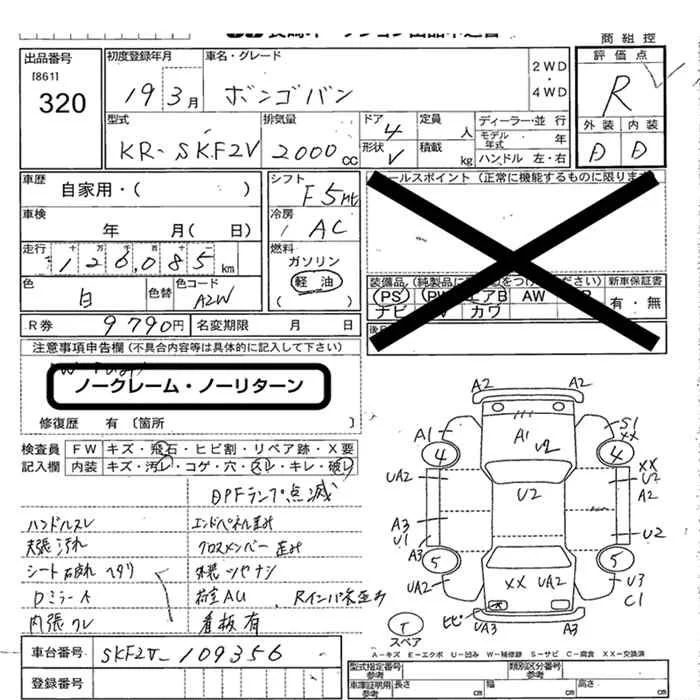 商組控
出品番号
[861]
320
初度登録年月
車名・グレード
19 3月
ボンゴバン
2WD
・
4WD
評価点
R
外装 内装
D D
型式
KR-SKF2V
排気量
2000cc
ドア 4
形状 V
定員 人
積載 kg
ディーラー・並行
モデル年式 年
ハンドル 左・右
車歴
自家用・( )
車検
年 月( 日)
走行
十 万 千
126,085km
シフト
F5Mt
冷房
AC
燃料
ガソリン
軽油
( )
色
白
色替
色コード
A2W
R券 9790円
名変期限 月 日
セールスポイント (正常に機能するものに限ります
装備品
PS PW エアB AW
ナビ TV カワ
新車保証書
有・無
注意事項申告欄(不具合内容等は具体的に記入して下さい)
ノークレーム・ノーリターン
修復歴 有 〔箇所 〕
検査員
記入欄
FW キズ・飛石・ヒビ割・リペア跡・X要
内装 キズ・汚レ・コゲ・穴・スレ・キレ・破レ
DPFランプ点滅
ハンドルスレ エンドパネル歪み
天張汚れ クロスメンバー歪み
シート破れ ヘタリ 外装ツヤナシ
Dミラー A 荷室AU
内張スレ 看板有
A2
A1
A1
U2
S1
XX
4
4
UA2
U2
XX
U2
A2
A3
U1
U2
A3
5
5
UA2
XX UA2
U3
C1
ヒビ
UA3
A3
A2
T
スペア
A-キズ E-エクボ U-凹み W-補修跡 S-サビ C-腐食 XX-交換済
車台番号
SKF2V-109356
登録番号
型式指定番号
参考
類別区分番号
参考
車庫証明用
参考
長さ cm
幅 cm
高さ cm